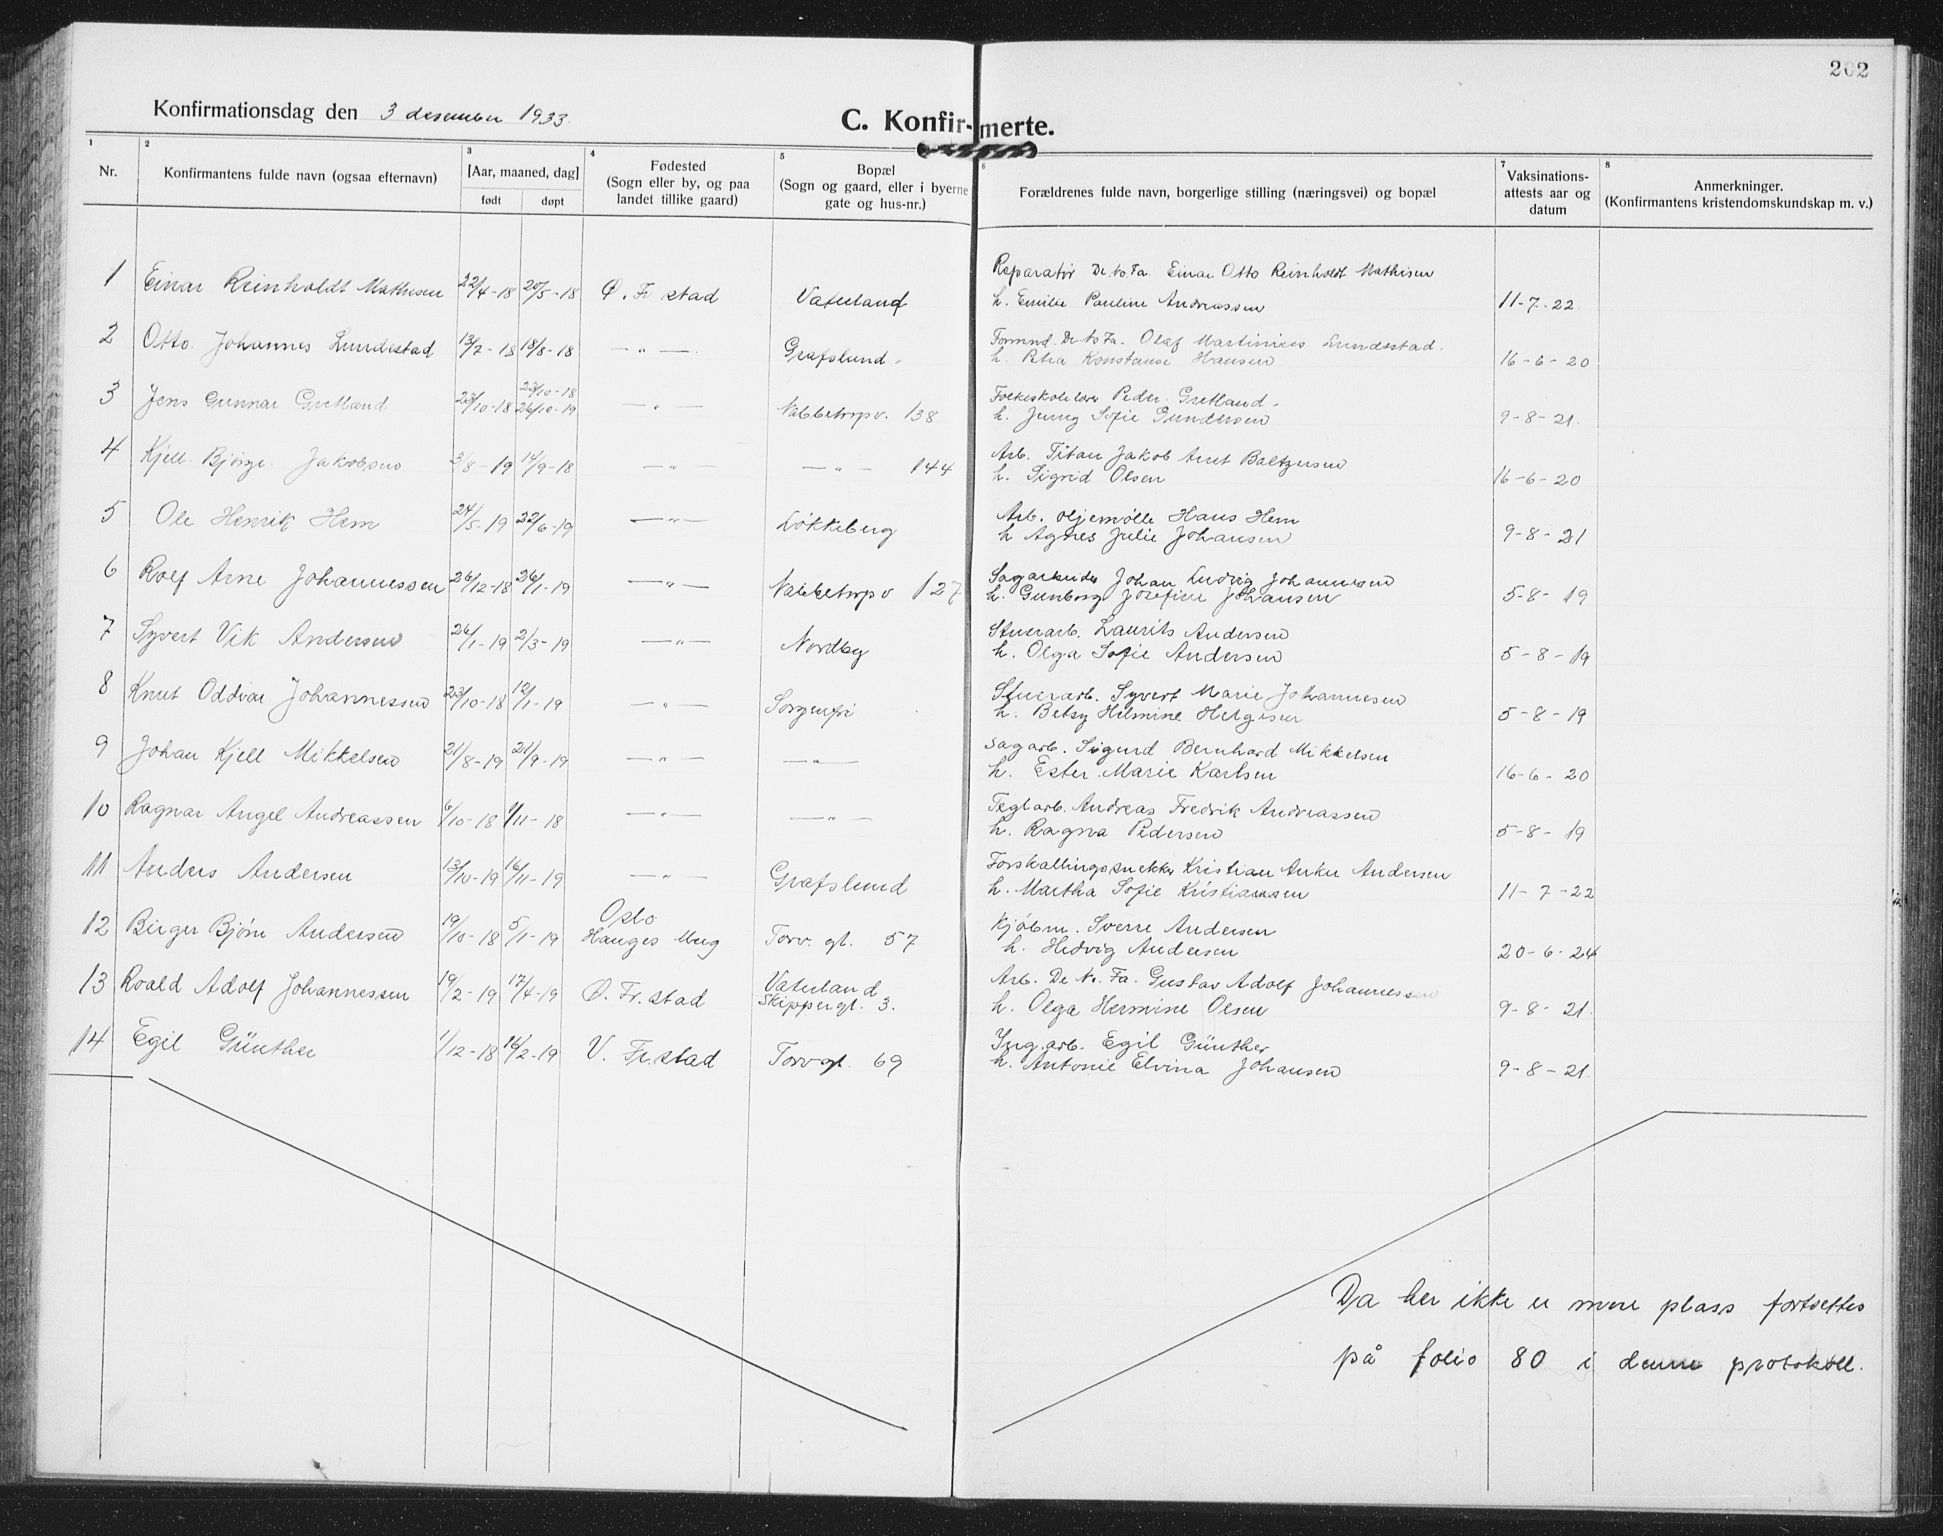 202
Konfirmationsdag den 3 desember 1933.
C. Konfir-merte.
1 2 3 4 5 6 7 8
Nr.
Konfirmantens fulde navn (ogsaa efternavn)
[Aar, maaned, dag]
født døpt
Fødested
(Sogn eller by, og paa
landet tillike gaard)
Bopæl
(Sogn og gaard, eller i byerne
gate og hus-nr.)
Forældrenes fulde navn, borgerlige stilling (næringsvei) og bopæl
Vaksinations-
attests aar og
datum
Anmerkninger.
(Konfirmantens kristendomskundskap m. v.)
Reparatør De No Fa. Einar Otto Reinholdt Mathisen
1 Einar Reinholdt Mathisen 22/4-18 20/5-18 Ø. Fr stad Vaterland h. Emilie Pauline Andreassen 11-7-22
Formnd. De No Fa. Olaf Martinius Lundestad.
2 Otto Johannes Lundestad 13/7-18 18/8-18 —"— Grafslund. h. Petra Konstanse Hansen 16-6-20
23/10-18 Folkeskolelærer Peder Gretland.
3 Jens Gunnar Gretland 23/10-18 26/10-19 —"— Nabbetorpv. 138 h. Jenny Sofie Gundersen 9-8-21.
Arb. Titan Jakob Arnt Baltzersen
4 Kjell Bjørge Jakobsen 3/8-19 14/9-18 —"— —"— 144 h. Sigrid Olsen 16-6-20
Arb. oljemølle Hans Hem
5 Ole Henrik Hem 24/5-19 22/6-19 —"— Løkkeberg h Agnes Julie Johansen 9-8-21
Sagarbeider Johan Ludvig Johannesen
6 Rolf Arne Johannessen 26/12-18 26/1-19 —"— Nabbetorpv 127 h. Gunborg Josefine Johansen 5-8-19
Stuerarb. Laurits Andersen
7 Syvert Vik Andersen 26/1-19 2/3-19 —"— Nordby h. Olga Sofie Andersen 5-8-19
Stuerarb. Syvert Marie Johannesen
8 Knut Oddvar Johannessen 23/10-18 12/1-19 —"— Sorgenfri h. Betsy Helmine Helgesen 5-8-19
Sagarb. Sigurd Bernhard Mikkelsen
9 Johan Kjell Mikkelsen 21/8-19 21/9-19 —"— —"— h. Ester Marie Karlsen 16-6-20
Teglarb. Andreas Fredrik Andreassen
10 Ragnar Angel Andreassen 6/10-18 1/11-18 —"— —"— h. Ragna Pedersen 5-8-19
Forskallingssnekker Kristian Anker Andersen
11 Anders Andersen 13/10-19 16/11-19 —"— Grafslund h. Martha Sofie Kristiansen 11-7-22
Oslo Kjøbm. Sverre Andersen
12 Birger Bjørn Andersen 19/10-18 5/1-19 Hauges Mng Torv. gt. 57 h. Hedvig Andersen 20-6-24
Vaterland Arb. De No. Fa. Gustav Adolf Johannessen
13 Roald Adolf Johannessen 19/2-19 17/4-19 Ø. Fr. stad Skippergt. 3. h. Olga Hermine Olsen 9-8-21.
Ing. arb. Egil Günther
14 Egil Günther 1/12-18 16/2-19 V. Fr. stad Torvgt. 69 h. Antonie Elvina Johansen 9-8-21.
Da her ikke er mere plass fortsettes
på folio 80 i denne protokoll.